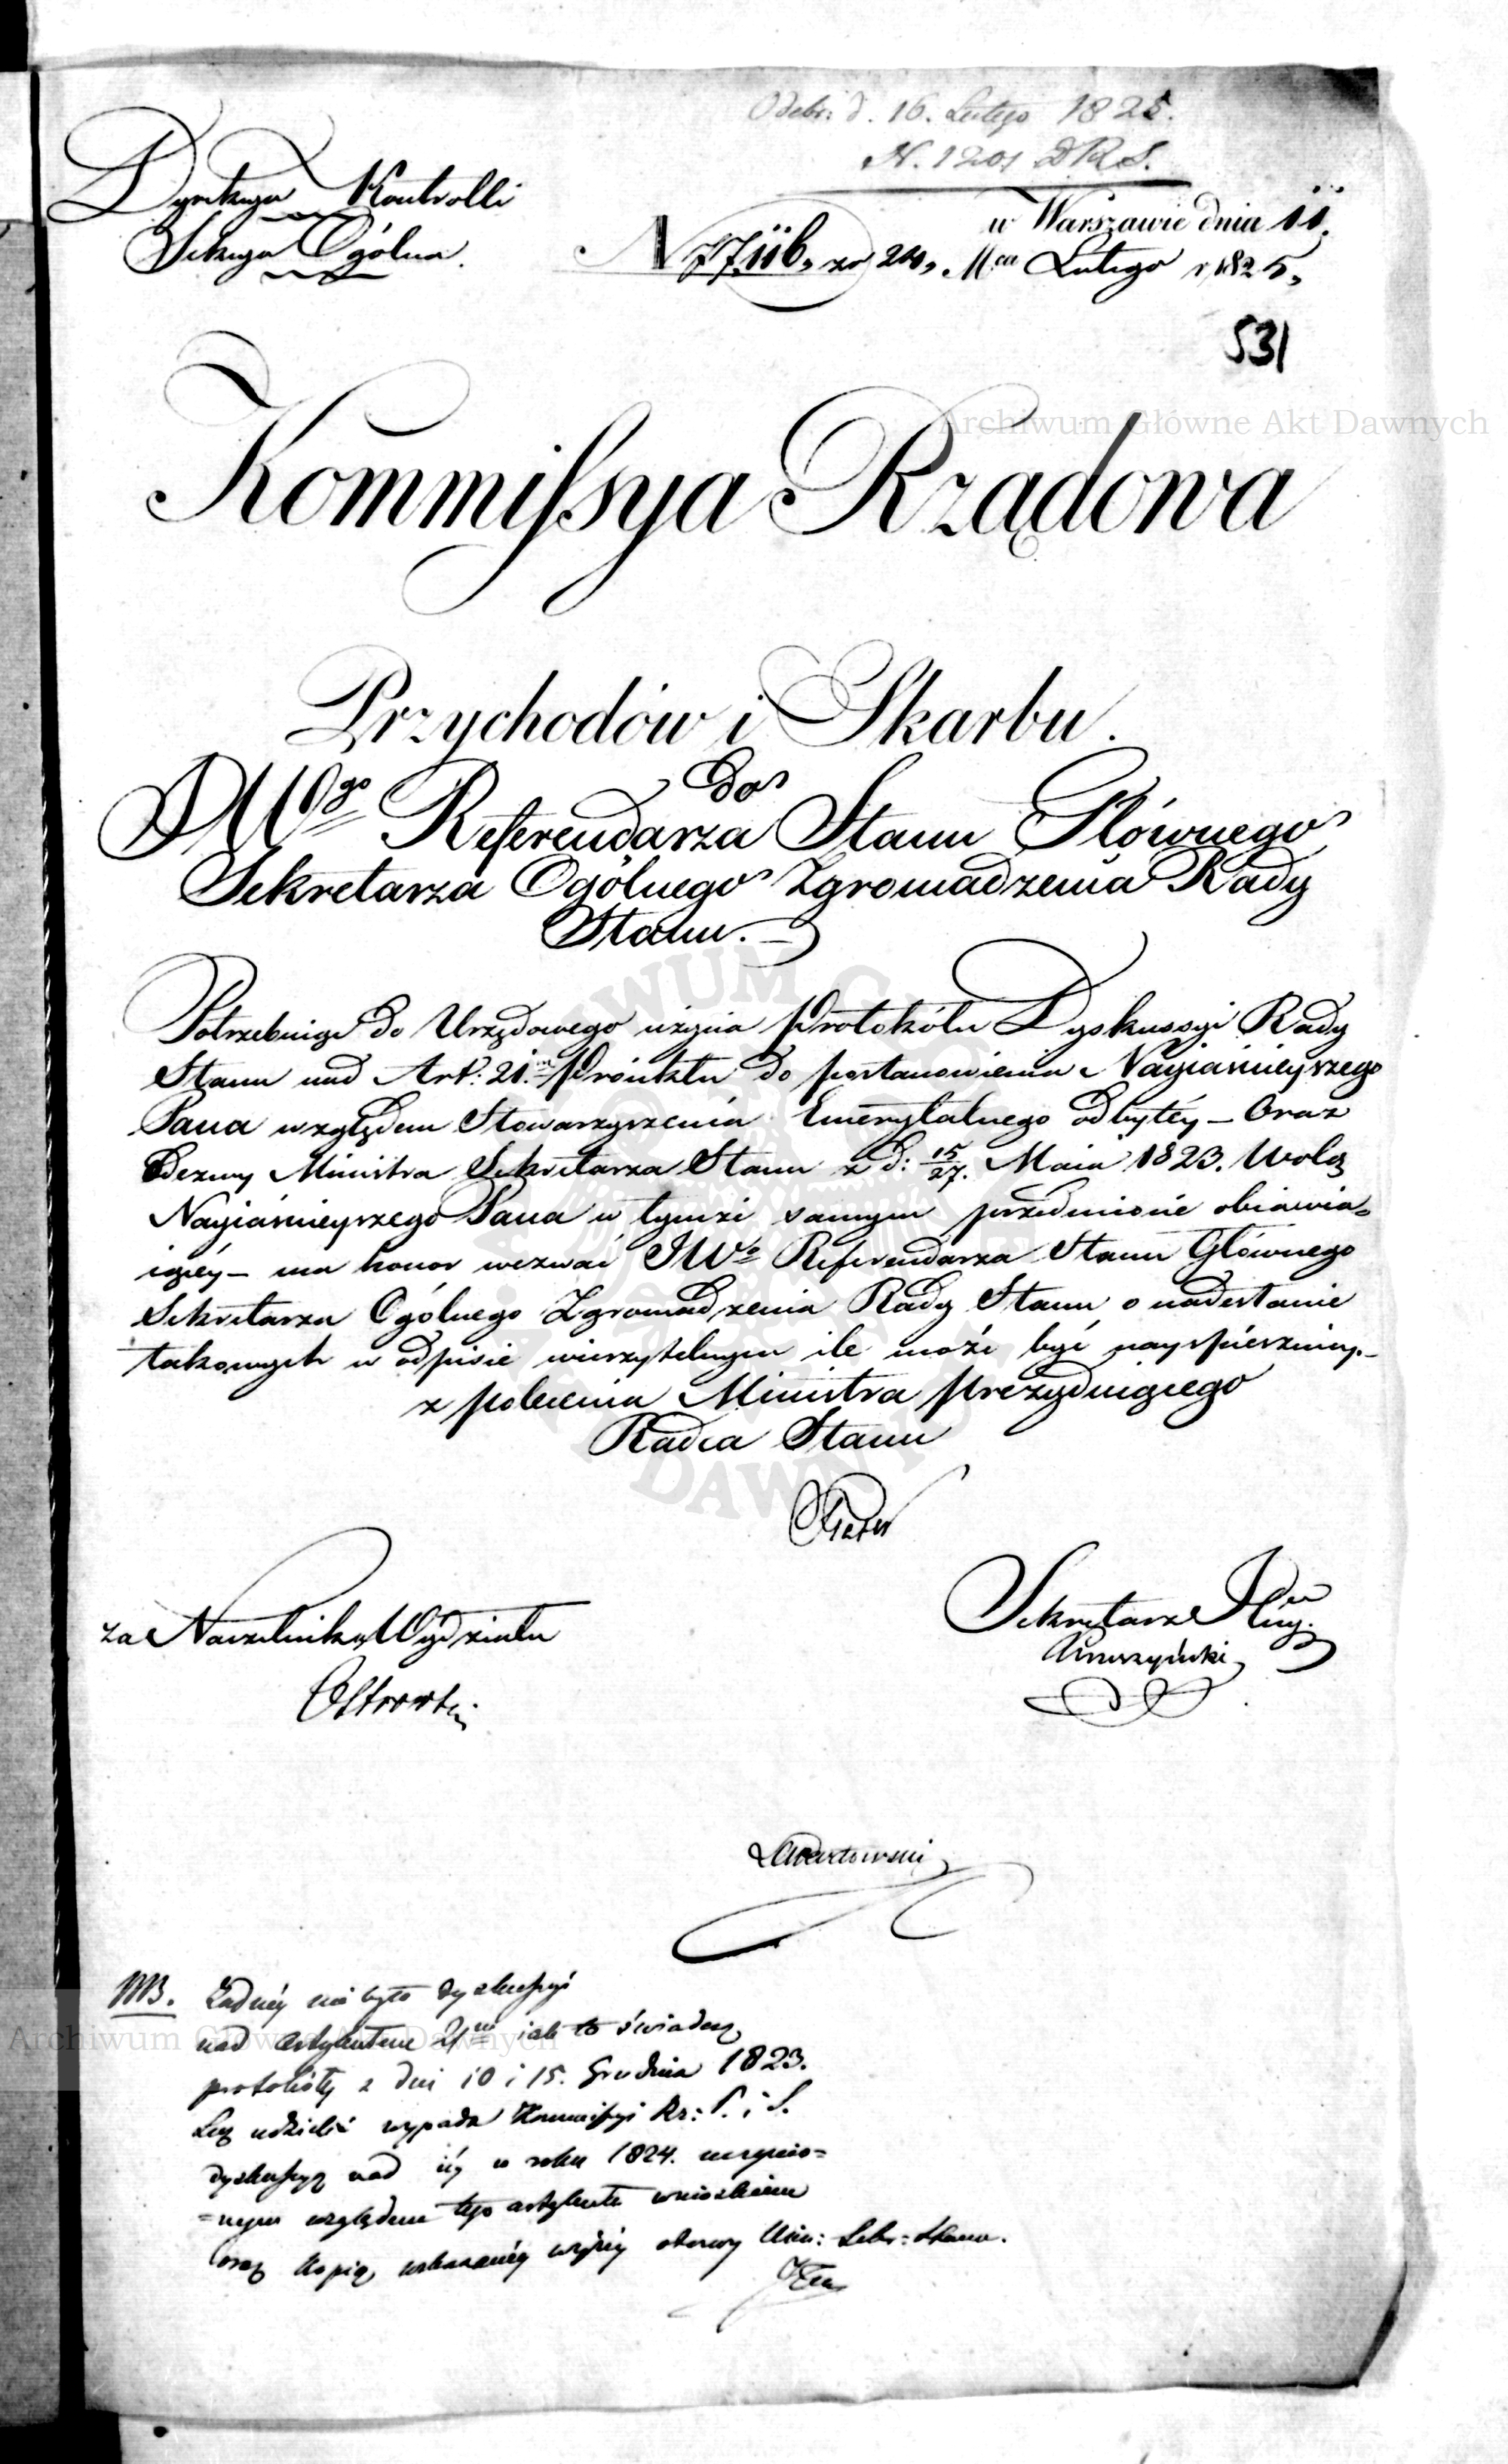 Odebr: d. 16. Lutego 1825.
N. 1201 D.R.S.
Dyrekcya Kontrolli
Sekcya Ogólna.
w Warszawie dnia 11.
N 77116, za 24, Mca Lutego r 1825,
531
Archiwum Główne Akt Dawnych
Kommissya Rządowa
Przychodów i Skarbu.
do
JWgo Referendarza Stanu Głównego
Sekretarza Ogólnego Zgromadzenia Rady
Stanu.
Potrzebuiąc do Urzędowego użycia Protokółu Dyskussyi Rady
Stanu nad Art: 21. Proiektu do postanowienia Nayiaśnieyszego
Pana względem Stowarzyszenia Emerytalnego odbytéy – Oraz
Odezwy Ministra Sekretarza Stanu z d: 15/27. Maia 1823. Wolę
Nayiaśnieyszego Pana w tymże samym przedmiocie obiawia=
iącéy – ma honor wezwać JWo Referendarza Stanu Głównego
Sekretarza Ogólnego Zgromadzenia Rady Stanu o nadesłanie
takowych w odpisie wierzytelnym ile może być nayspieszniey. –
z polecenia Ministra Prezyduiącego
Radca Stanu
za Naczelnika Wydziału
Sekretarz Jlny.
NB. Żadnéy nie było dyskussyi
nad Artykułem 21m iak to świadczą
protokóły z dni 10 i 15. Grudnia 1823.
Lecz udzielić wypada Kommissyi Rz: P. i S.
dyskussyą nad iéy w roku 1824. uczynio=
=nym względem tego artykułu wnioskiem
oraz kopią wskazanéy wyżéy odezwy Min: Sekr: Stanu.
Archiwum Główne Akt Dawnych